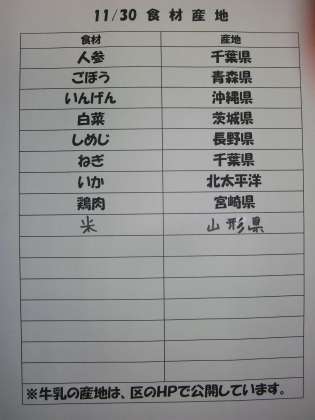 11/30 食材産地
食材 産地
人参 千葉県
ごぼう 青森県
いんげん 沖縄県
白菜 茨城県
しめじ 長野県
ねぎ 千葉県
いか 北太平洋
鶏肉 宮崎県
米 山形県
※牛乳の産地は、区のHPで公開しています。